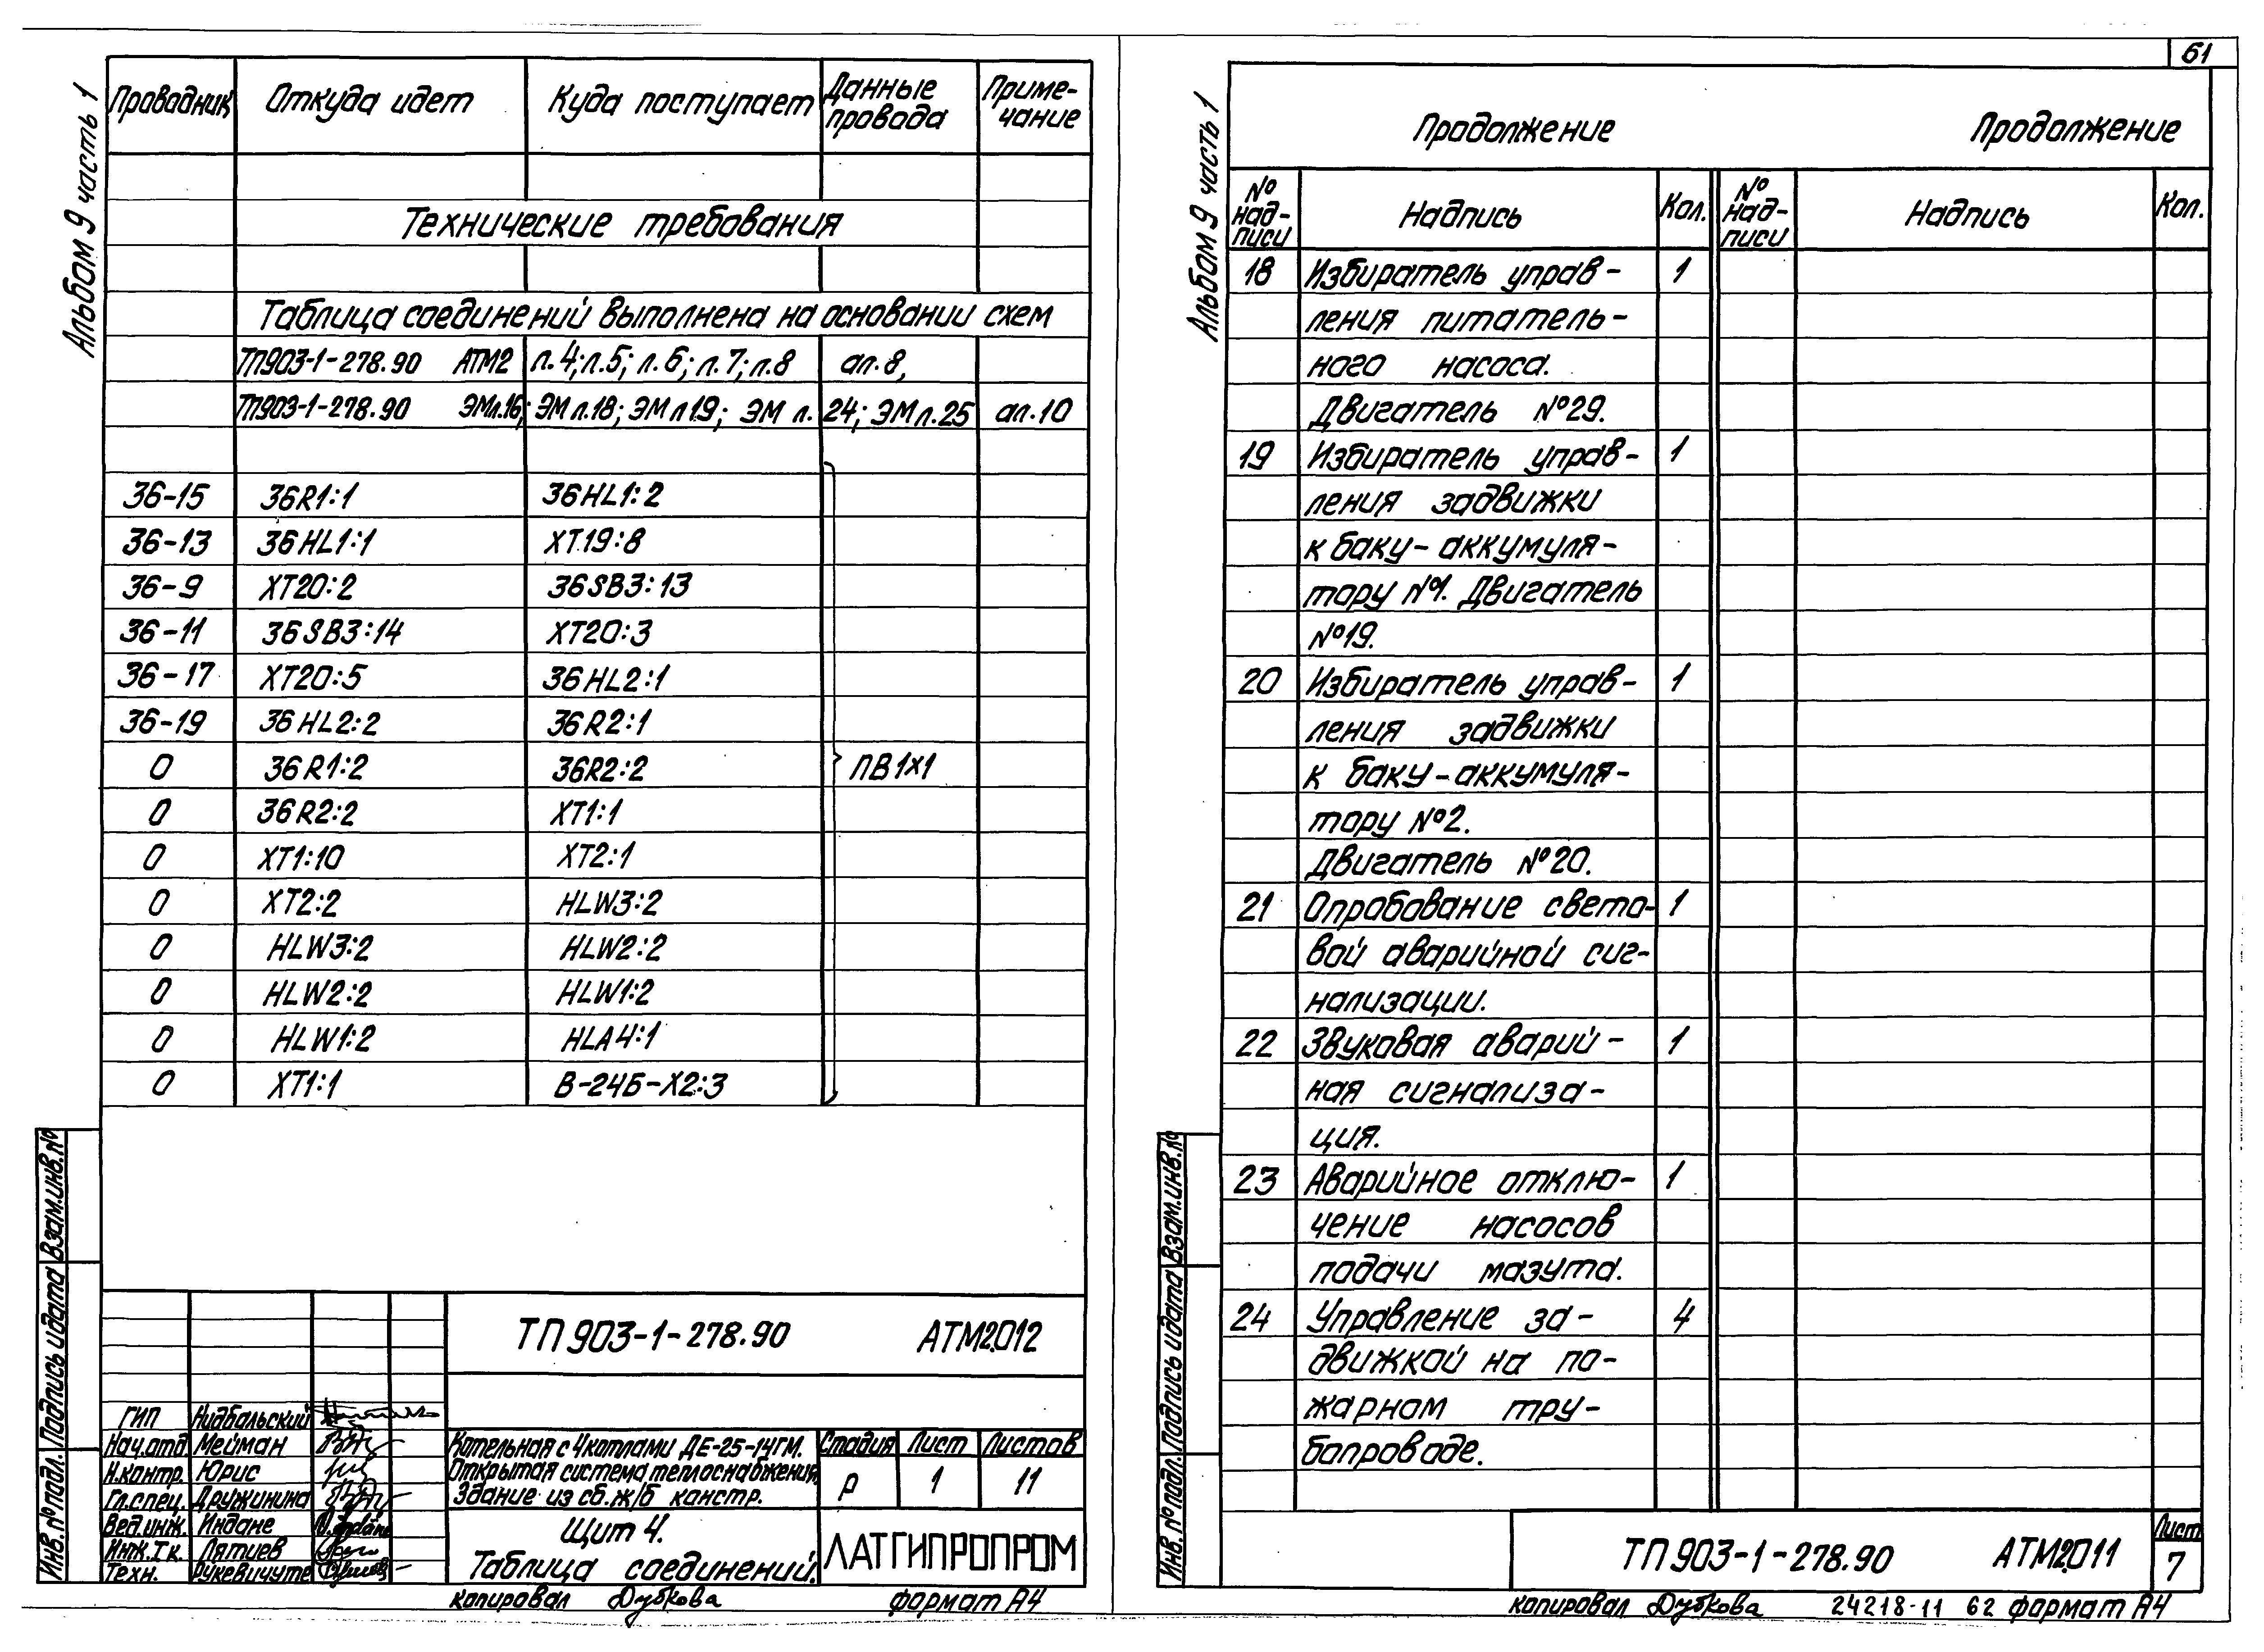 Альбом 9 часть 1
Проводник Откуда идет Куда поступает Данные провода Приме-чание
Технические требования
Таблица соединений выполнена на основании схем
ТП903-1-278.90 АТМ2 л.4; л.5; л.6; л.7; л.8 ал.8,
ТП903-1-278.90 ЭМл.16; ЭМ л.18; ЭМ л19; ЭМ л. 24; ЭМ л.25 ал.10
36-15 36R1:1 36HL1:2
36-13 36HL1:1 XT19:8
36-9 XT20:2 36SB3:13
36-11 36SB3:14 XT20:3
36-17 XT20:5 36HL2:1
36-19 36HL2:2 36R2:1
0 36R1:2 36R2:2 ПВ1х1
0 36R2:2 XT1:1
0 XT1:10 XT2:1
0 XT2:2 HLW3:2
0 HLW3:2 HLW2:2
0 HLW2:2 HLW1:2
0 HLW1:2 HLA4:1
0 XT1:1 В-24Б-Х2:3
Инв.№подл. Подпись и дата Взам.инв.№
ТП903-1-278.90 АТМ2.012
ГИП Нидбальский
Нач.отд. Мейман
Н.контр. Юрис
Гл.спец. Дружинина
Вед.инж. Индане
Инж.Iк. Лятиев
Техн. Рукевичуте
Котельная с 4 котлами ДЕ-25-14ГМ.
Открытая система теплоснабжения.
Здание из сб.ж/б констр.
Стадия Лист Листов
Р 1 11
Щит 4.
Таблица соединений.
ЛАТГИПРОПРОМ
копировал Дубкова формат А4
61
Альбом 9 часть 1
Продолжение Продолжение
№ над-писи Надпись Кол. № над-писи Надпись Кол.
18 Избиратель управ- 1
ления питатель-
ного насоса.
Двигатель №29.
19 Избиратель управ- 1
ления задвижки
к баку-аккумуля-
тору №1. Двигатель
№19.
20 Избиратель управ- 1
ления задвижки
к баку-аккумуля-
тору №2.
Двигатель №20.
21 Опробование свето- 1
вой аварийной сиг-
нализации.
22 Звуковая аварий- 1
ная сигнализа-
ция.
23 Аварийное отклю- 1
чение насосов
подачи мазута.
24 Управление за- 4
движкой на по-
жарном тру-
бопроводе.
Инв.№подл. Подпись и дата Взам.инв.№
ТП903-1-278.90 АТМ2.011
Лист
7
копировал Дубкова 24218-11 62 формат А4